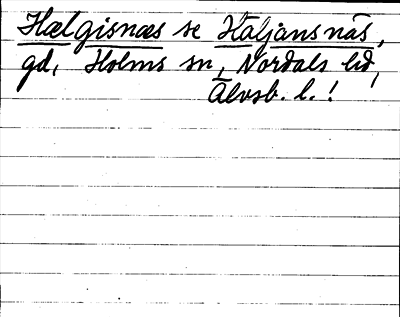 Hælgisnæs se Häljänsnäs,
gd, Holms sn, Nordals hd,
Älvsb. l. !